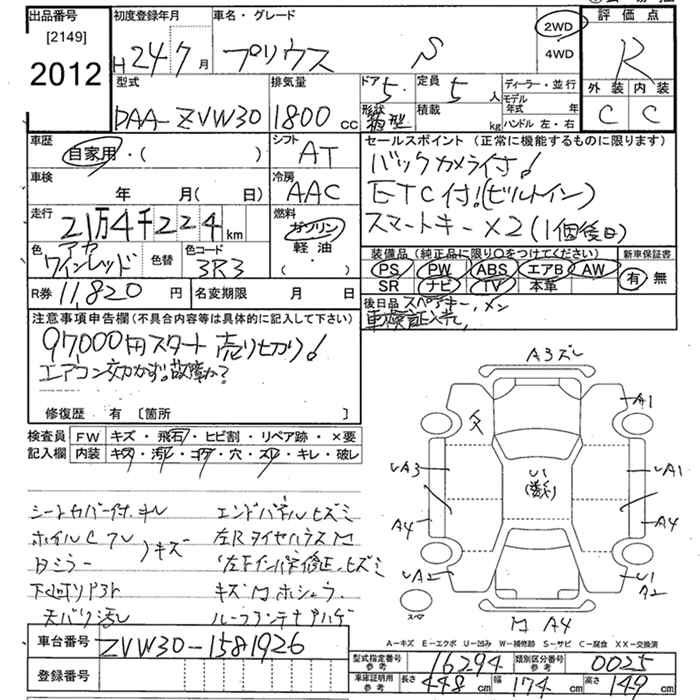 出品番号 初度登録年月 車名・グレード 評価点
[2149] H24年7月 プリウス S 2WD R
2012 4WD
型式 排気量 ドア 定員 ディーラー・並行 外装 内装
DAA-ZVW30 1800cc 5 5人 モデル年式 年 C C
形状 箱型 積載 kg ハンドル 左・右
車歴 シフト セールスポイント(正常に機能するものに限ります)
自家用・( ) AT バックカメラ付!
車検 冷房 ETC付!(ビルトイン)
年 月(日) AAC スマートキー×2(1個後日)
走行 燃料
21万4千224km ガソリン 装備品(純正品に限り○をつけてください) 新車保証書
色 アカ 色替 色コード 軽油・ PS PW ABS エアB AW 有 無
ワインレッド 3R3 ( ) SR ナビ TV 本革
R券 11,820円 名変期限 月 日 後日品 スペアキー、メン
注意事項申告欄(不具合内容等は具体的に記入して下さい) 車検証入れ、
97000円スタート 売り切り!
エアコン効かず。故障か?
修復歴 有 [箇所 ]
検査員 FW キズ・飛石・ヒビ割・リペア跡・×要
記入欄 内装 キズ・汚レ・コゲ・穴・スレ・キレ・破レ
シートカバー付、キレ エンドパネルヒズミ
ホイルC フレ キズ 左RタイヤハウスM
日ミラー 左Fインパネ修正、ヒズミ
下廻りサビ キズM ホシュウ
天バリ汚レ ルーフアンテナアハゲ
A3ズレ
A1
UA3 UA1
U1
A4 A4
UA2 U1
A2
スペア M A4
A-キズ E-エクボ U-凹み W-補修跡 S-サビ C-腐食 XX-交換済
車台番号 ZVW30-1581926
登録番号
型式指定番号参考 16294 類別区分番号参考 0025
車庫証明用参考 長さ 448cm 幅 174cm 高さ 149cm